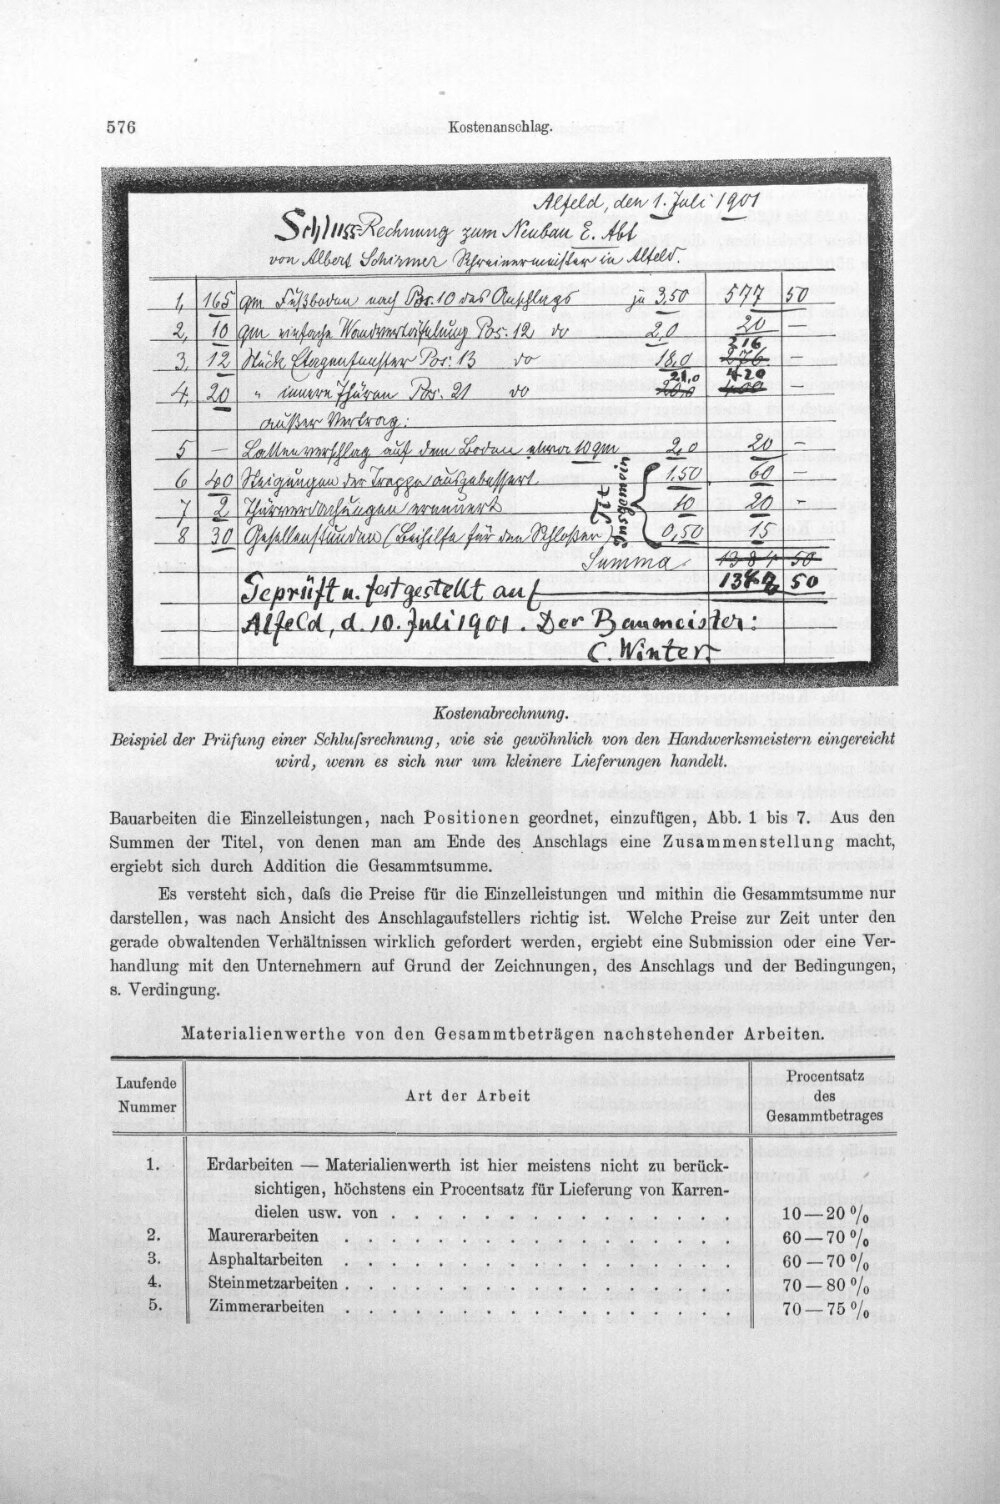 576
Kostenanschlag.
Alfeld, den 1. Juli 1901
Schluss-Rechnung zum Neubau E. Abt
von Albert Schirmer Schreinermeister in Alfeld.
1, 165 qm Fußboden nach Pos. 10 des Anschlags je 3,50 577 50
2, 10 qm einfache Wandvertäfelung Pos. 12 do 2,0 20 —
216
3, 12 Stück Etagenfenster Pos. 13 do 18,0 276 —
21,0 420
4, 20 " innere Thüren Pos. 21 do 20,0 400 —
außer Vertrag:
5 — Lattenverschlag auf dem Boden etwa 10 qm 2,0 20 —
6 40 Steigungen der Treppe ausgebessert 1,50 60 —
7 2 Thürverdachungen erneuert 10 20 -
8 30 Gesellenstunden (Beihilfe für den Schlosser) 0,50 15
Summa 1384 50
50
Geprüft u. festgestellt auf
Alfeld, d. 10. Juli 1901. Der Baumeister:
C. Winter.
Kostenabrechnung.
Beispiel der Prüfung einer Schluſsrechnung, wie sie gewöhnlich von den Handwerksmeistern eingereicht
wird, wenn es sich nur um kleinere Lieferungen handelt.
Bauarbeiten die Einzelleistungen, nach Positionen geordnet, einzufügen, Abb. 1 bis 7. Aus den
Summen der Titel, von denen man am Ende des Anschlags eine Zusammenstellung macht,
ergiebt sich durch Addition die Gesammtsumme.
Es versteht sich, daſs die Preise für die Einzelleistungen und mithin die Gesammtsumme nur
darstellen, was nach Ansicht des Anschlagaufstellers richtig ist. Welche Preise zur Zeit unter den
gerade obwaltenden Verhältnissen wirklich gefordert werden, ergiebt eine Submission oder eine Ver-
handlung mit den Unternehmern auf Grund der Zeichnungen, des Anschlags und der Bedingungen,
s. Verdingung.
Materialienwerthe von den Gesammtbeträgen nachstehender Arbeiten.
Laufende
Nummer
Art der Arbeit
Procentsatz
des
Gesammtbetrages
1. Erdarbeiten — Materialienwerth ist hier meistens nicht zu berück-
sichtigen, höchstens ein Procentsatz für Lieferung von Karren-
dielen usw. von . . . . . . . . . . . . . . . 10—20 %
2. Maurerarbeiten . . . . . . . . . . . . . . . . . 60—70 %
3. Asphaltarbeiten . . . . . . . . . . . . . . . . . 60—70 %
4. Steinmetzarbeiten . . . . . . . . . . . . . . . . . 70—80 %
5. Zimmerarbeiten . . . . . . . . . . . . . . . . . 70—75 %